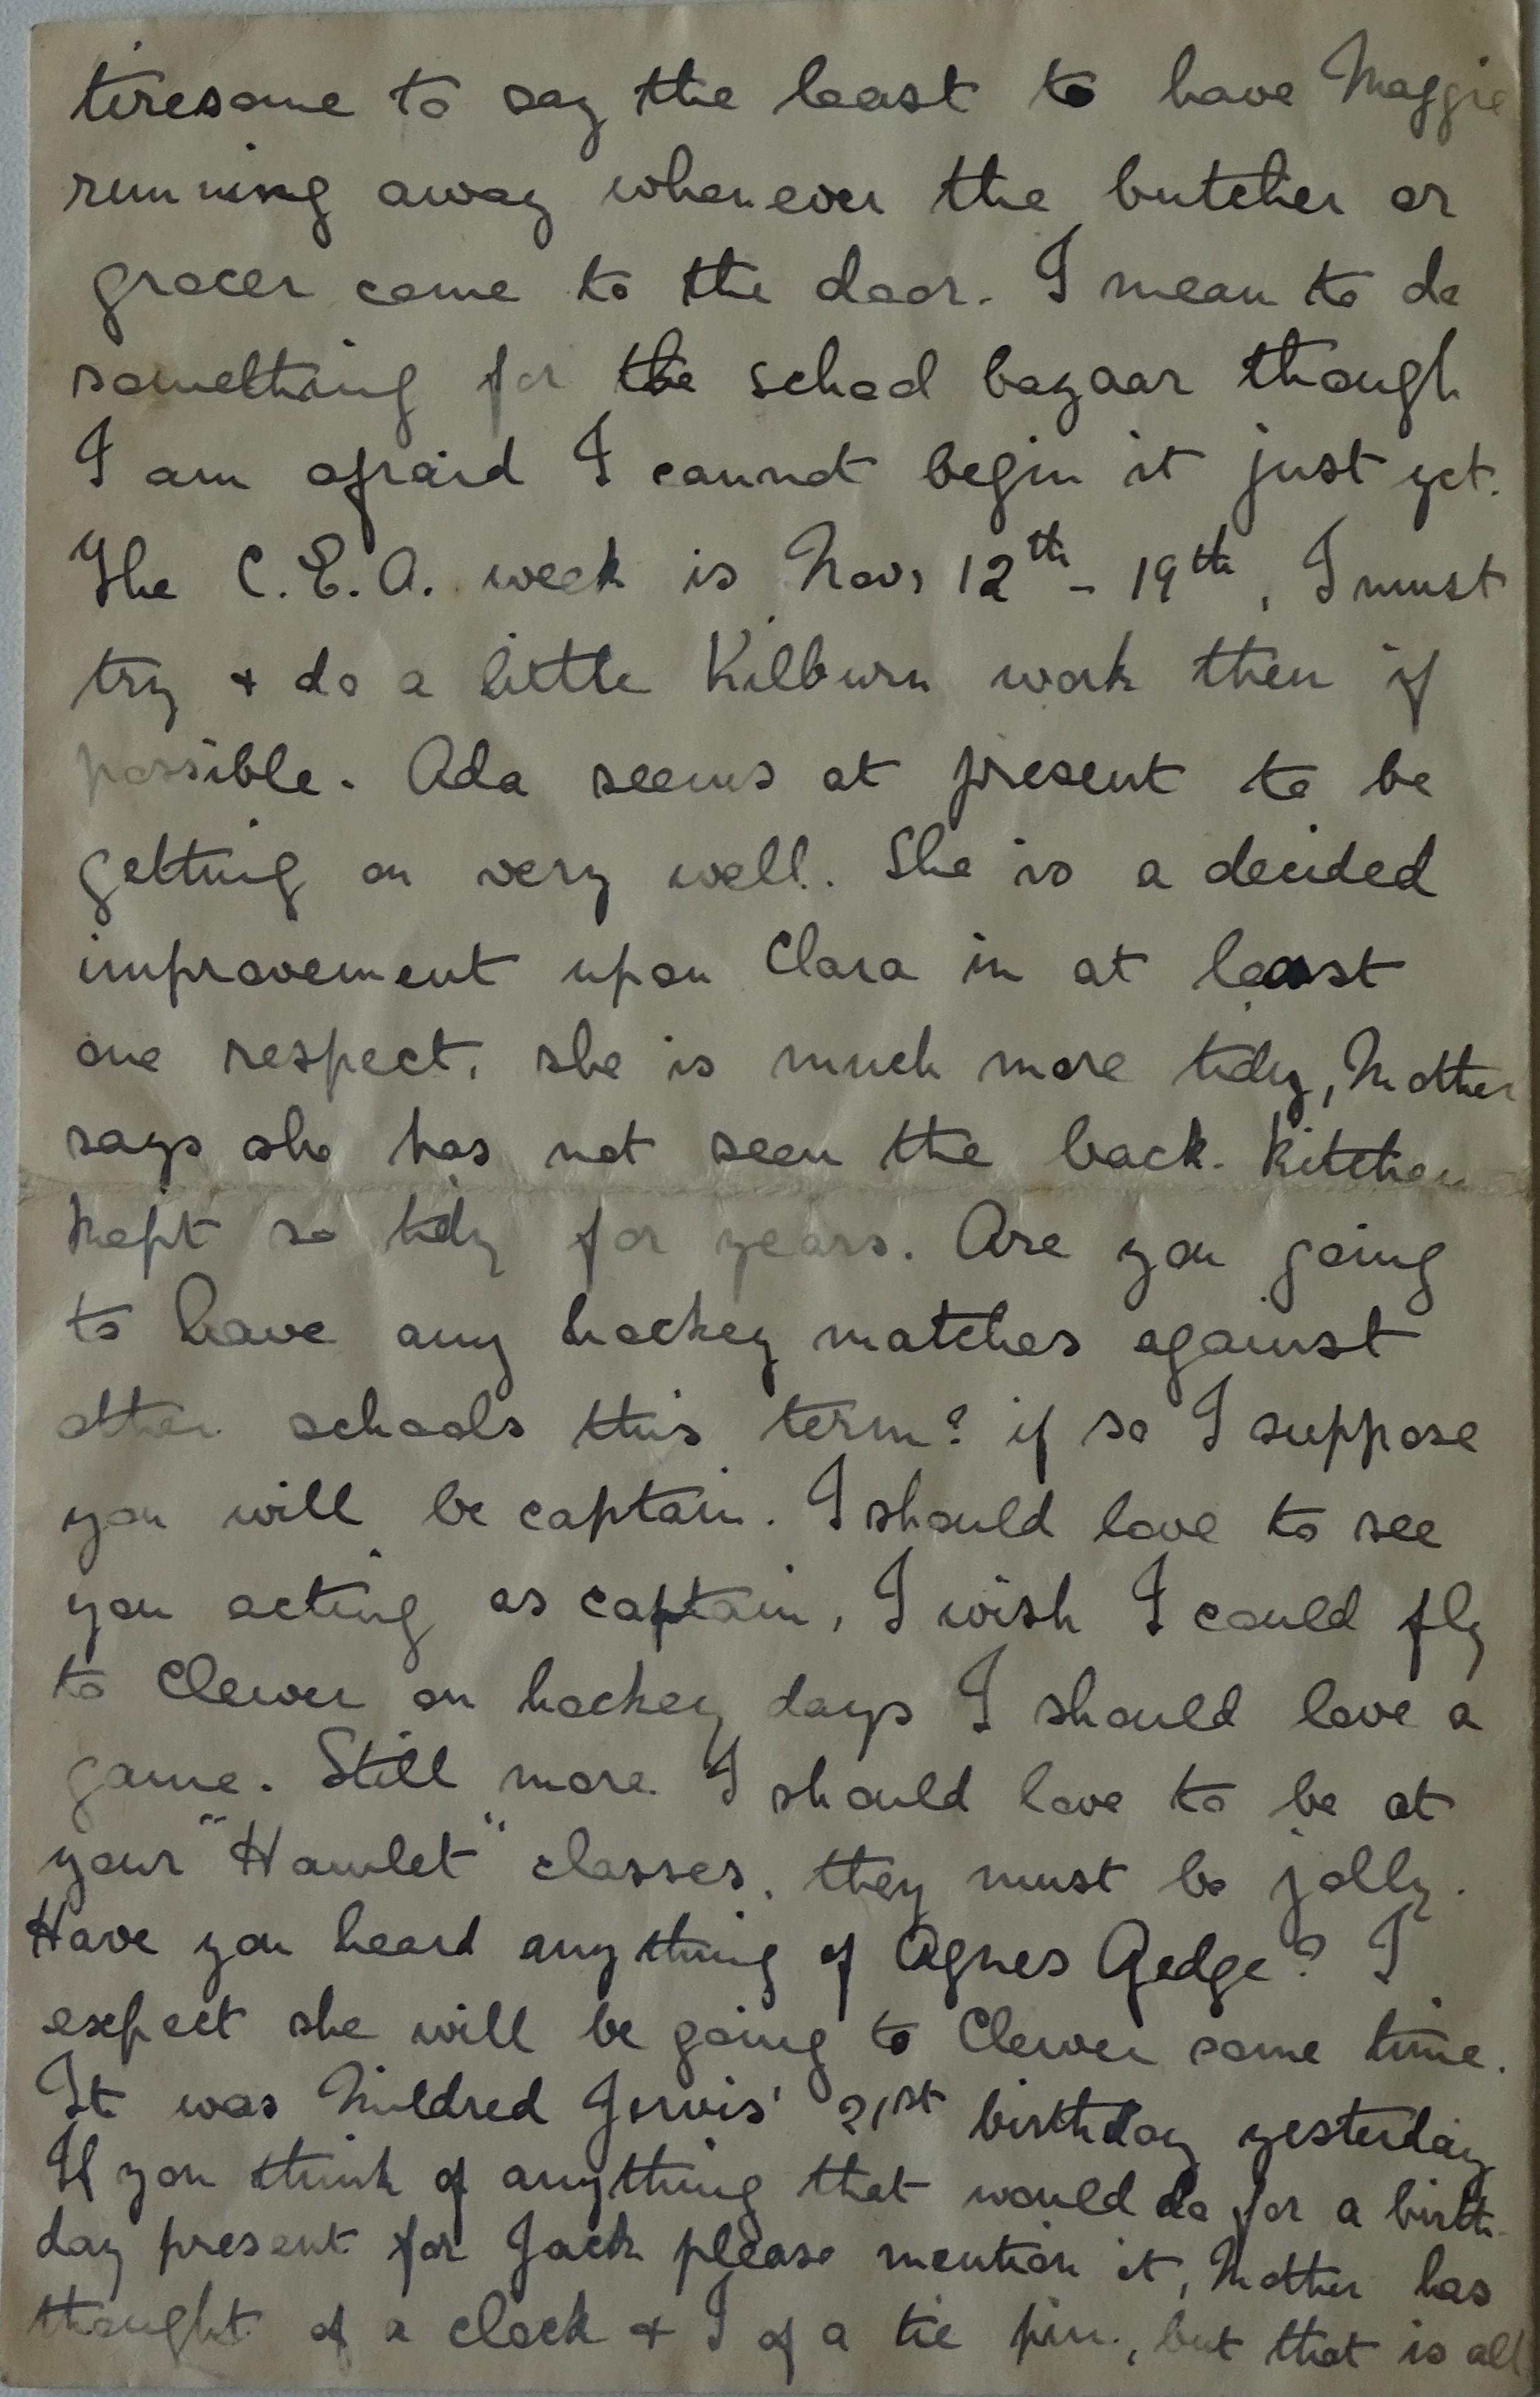 tiresome to say the least to have Maggie
running away whenever the butcher or
grocer come to the door. I mean to do
something for the school bazaar though
I am afraid I cannot begin it just yet.
The C.E.A. week is Nov. 12th - 19th, I must
try + do a little Kilburn work then if
possible. Ada seems at present to be
getting on very well. She is a decided
improvement upon Clara in at least
one respect, she is much more tidy, Mother
says she has not seen the back-kitchen
kept so tidy for years. Are you going
to have any hockey matches against
other schools this term? if so I suppose
you will be captain. I should love to see
you acting as captain, I wish I could fly
to Clewer on hockey days I should love a
game. Still more I should love to be at
your "Hamlet" classes, they must be jolly.
Have you heard anything of Agnes Gedge? I
expect she will be going to Clewer some time.
It was Mildred Jervis' 21st birthday yesterday
If you think of anything that would do for a birth-
day present for Jack please mention it, Mother has
thought of a clock + I of a tie pin, but that is all